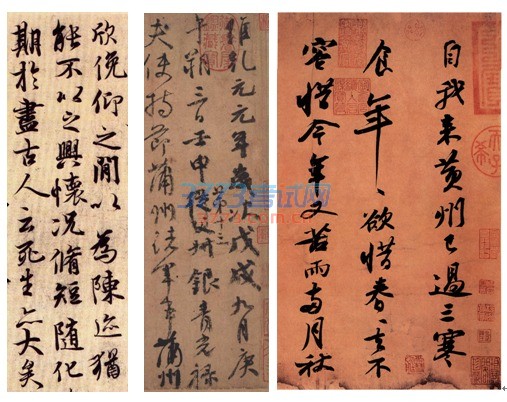 欣俛仰之閒以為陳迹猶
能不以之興懷況脩短隨化
期於盡古人云死生亦大矣
維乾元元年歲次戊戌九月庚
午朔三日壬申 銀青光祿
夫使持節蒲州諸軍事蒲州
自我來黃州已過三寒
食年〻欲惜春〻去不
容惜今年又苦雨兩月秋
考试网